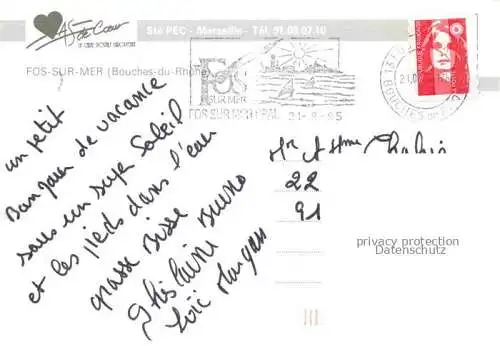 AS de Cœur
Sté PEC - Marseille - Tél. 91.08.07.10
FOS-SUR-MER (Bouches-du-Rhône)
FOS
SUR MER
21-8-95
un petit
Bonjour de vacance
sous un super Soleil
et les pieds dans l'eau
grosse Bisse
Ghislaine Bruno
Loïc Morgan
Mr et Mme
22
91
privacy protection
Datenschutz